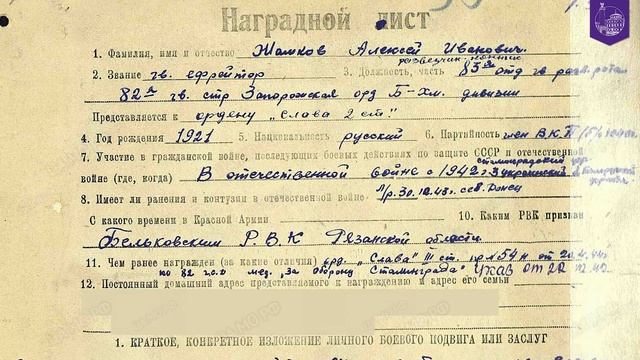 Наградной лист
1. Фамилия, имя и отчество Жамков Алексей Иванович.
2. Звание гв. ефрейтор 3. Должность, часть разведчик 83я отд гв разв. рота
82й гв. стр Запорожская орд Б-Хм. дивизии
Представляется к ордену „Слава 2 ст."
4. Год рождения 1921 5. Национальность русский 6. Партийность член В.К.П/б/
7. Участие в гражданской войне, последующих боевых действиях по защате СССР и отечественной
войне (где, когда) В отечественной войне с 1942 г. Сталинградский 3 украинский
8. Имеет ли ранения и контузии в отечественной войне л/р. 30.10.43 Донец
С какого времени в Красной Армии 10. Каким РВК призван
Бельковским Р.В.К Рязанской области.
11. Чем ранее награжден (за какие отличия) орд. „Слава" III ст. пр № 54н от 20.4.44
по 82 г.с.д мед. „за оборону Сталинграда" Указ от 22.12.42
12. Постоянный домашний адрес представляемого к награждению и адрес его семьи
1. КРАТКОЕ, КОНКРЕТНОЕ ИЗЛОЖЕНИЕ ЛИЧНОГО БОЕВОГО ПОДВИГА ИЛИ ЗАСЛУГ